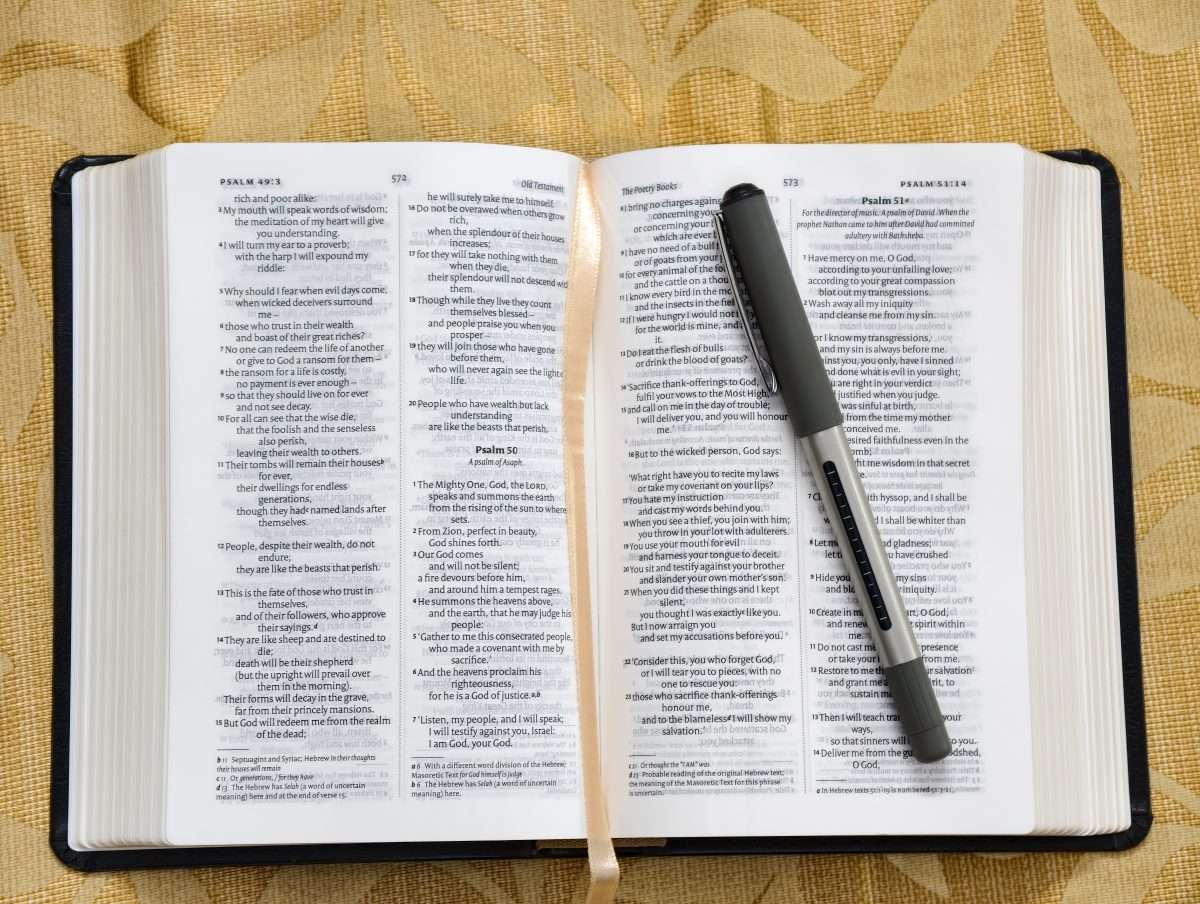 PSALM 49:3
572
Old Testament
rich and poor alike:
3 My mouth will speak words of wisdom;
the meditation of my heart will give
you understanding.
4 I will turn my ear to a proverb;
with the harp I will expound my
riddle:
5 Why should I fear when evil days come,
when wicked deceivers surround
me –
6 those who trust in their wealth
and boast of their great riches?
7 No one can redeem the life of another
or give to God a ransom for them –
8 the ransom for a life is costly,
no payment is ever enough –
9 so that they should live on for ever
and not see decay.
10 For all can see that the wise die,
that the foolish and the senseless
also perish,
leaving their wealth to others.
11 Their tombs will remain their houses b
for ever,
their dwellings for endless
generations,
though they had c named lands after
themselves.
12 People, despite their wealth, do not
endure;
they are like the beasts that perish.
13 This is the fate of those who trust in
themselves,
and of their followers, who approve
their sayings. d
14 They are like sheep and are destined to
die;
death will be their shepherd
(but the upright will prevail over
them in the morning).
Their forms will decay in the grave,
far from their princely mansions.
15 But God will redeem me from the realm
of the dead;
b 11 Septuagint and Syriac; Hebrew In their thoughts
their houses will remain
c 11 Or generations, / for they have
d 13 The Hebrew has Selah (a word of uncertain
meaning) here and at the end of verse 15.
he will surely take me to himself.
16 Do not be overawed when others grow
rich,
when the splendour of their houses
increases;
17 for they will take nothing with them
when they die,
their splendour will not descend with
them.
18 Though while they live they count
themselves blessed –
and people praise you when you
prosper –
19 they will join those who have gone
before them,
who will never again see the light
life.
20 People who have wealth but lack
understanding
are like the beasts that perish.
Psalm 50
A psalm of Asaph.
1 The Mighty One, God, the LORD,
speaks and summons the earth
from the rising of the sun to where
sets.
2 From Zion, perfect in beauty,
God shines forth.
3 Our God comes
and will not be silent;
a fire devours before him,
and around him a tempest rages.
4 He summons the heavens above,
and the earth, that he may judge his
people:
5 'Gather to me this consecrated people,
who made a covenant with me by
sacrifice.'
6 And the heavens proclaim his
righteousness,
for he is a God of justice. a,b
7 'Listen, my people, and I will speak;
I will testify against you, Israel:
I am God, your God.
a 6 With a different word division of the Hebrew;
Masoretic Text for God himself is judge
b 6 The Hebrew has Selah (a word of uncertain
meaning) here.
The Poetry Books
573
PSALM 51:14
8 I bring no charges against
concerning your
or concerning your
which are ever
9 I have no need of a bull
or of goats from your
10 for every animal of the
and the cattle on a
11 I know every bird in the
and the insects in the
12 If I were hungry I would not
for the world is mine, and
it.
13 Do I eat the flesh of bulls
or drink the blood of goats?
14 'Sacrifice thank-offerings to God,
fulfil your vows to the Most High,
15 and call on me in the day of trouble;
I will deliver you, and you will honour
me.'
16 But to the wicked person, God says:
'What right have you to recite my laws
or take my covenant on your lips?
17 You hate my instruction
and cast my words behind you.
18 When you see a thief, you join with him;
you throw in your lot with adulterers.
19 You use your mouth for evil
and harness your tongue to deceit.
20 You sit and testify against your brother
and slander your own mother's son.
21 When you did these things and I kept
silent,
you thought I was exactly c like you.
But I now arraign you
and set my accusations before you.
22 'Consider this, you who forget God,
or I will tear you to pieces, with no
one to rescue you:
23 those who sacrifice thank-offerings
honour me,
and to the blameless d I will show my
salvation.'
c 21 Or thought the "I AM" was
d 23 Probable reading of the original Hebrew text;
the meaning of the Masoretic Text for this phrase
is uncertain.
Psalm 51 a
For the director of music. A psalm of David. When the
prophet Nathan came to him after David had committed
adultery with Bathsheba.
1 Have mercy on me, O God,
according to your unfailing love;
according to your great compassion
blot out my transgressions.
2 Wash away all my iniquity
and cleanse me from my sin.
I know my transgressions,
and my sin is always before me.
you, you only, have I sinned
and done what is evil in your sight;
you are right in your verdict
justified when you judge.
was sinful at birth,
from the time my mother
conceived me.
desired faithfulness even in the
me wisdom in that secret
7 with hyssop, and I shall be
and I shall be whiter than
8 Let me and gladness;
let you have crushed
9 Hide your my sins
and iniquity.
10 Create in me heart, O God,
and renew spirit within
me.
11 Do not cast presence
or take your from me.
12 Restore to me salvation
and grant me a to
sustain me
13 Then I will teach your
ways,
so that sinners will to you.
14 Deliver me from the
O God,
a In Hebrew texts 51:1-19 is numbered 51:3-21.